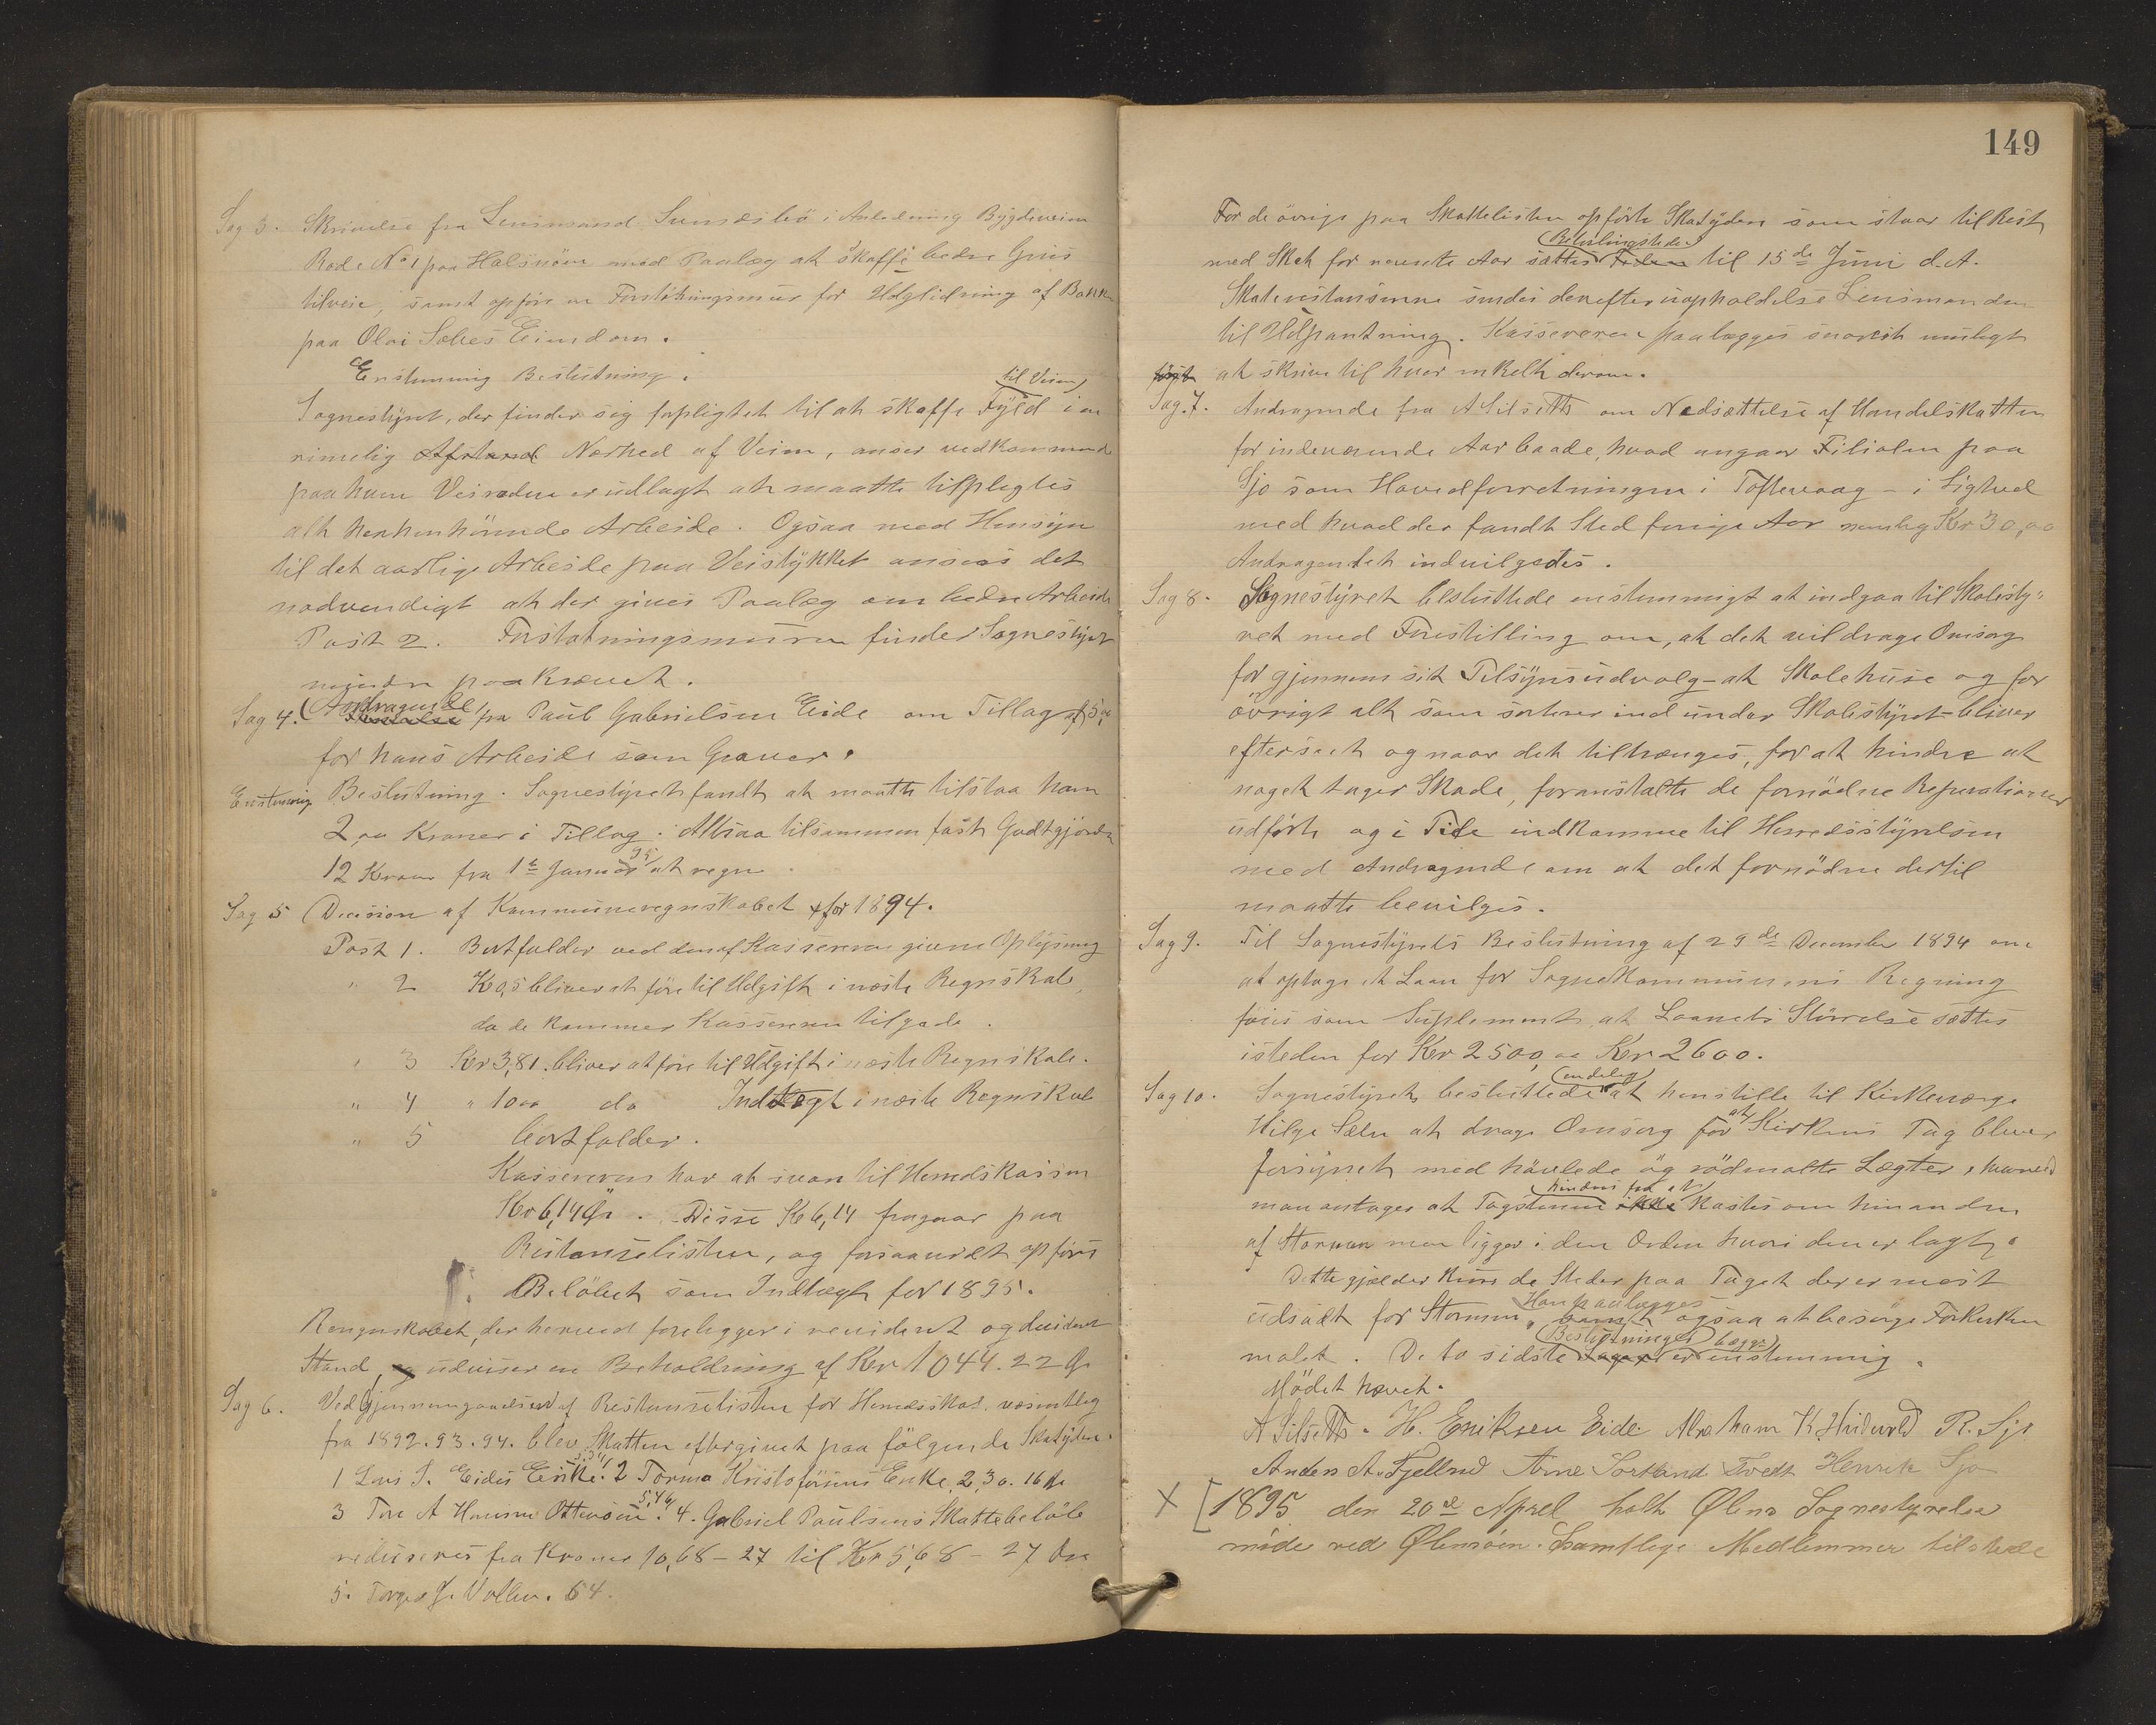 Sag 3. Skrivelse fra Lensmand Sunæsbö i Anledning Bygdeveien
Rode No 1 paa Halsnöen med Paalæg at skaffe bedre Grus
tilveie, samt opføre en Forstötningsmur for Udglidning af Bakken
paa Olai Sæbös Eiendom.
Enstemmig Beslutning.
til Veien
Sognestyret, der finder sig forpligtet til at skaffe Fyld i en
rimelig Afstand Nærhed af Veien, anser vedkommende
paa hvem Veiroden er udlagt at maatte tilpligtes
alt herhenhörende Arbeide. Ogsaa med Hensyn
til det aarlige Arbeide paa Veistykket ansees det
nödvendigt at der gives Paalæg om bedre Arbeide
Post 2. Forstøtningsmuren finder Sognestyret
mindre paakrævet.
Sag 4. Andragende fra Paul Gabrielsen Eide om Tillæg
for hans Arbeide som Graver.
Enstemmig Beslutning. Sognestyret fandt at maatte tilstaa ham
2,00 Kroner i Tillæg. Altsaa tilsammen fast Godtgjörelse
12 Kroner fra 1ste Januar 95 at regne.
Sag 5 Decision af Kommuneregnskabet for 1894.
Post 1. Bortfalder ved den af Kassereren givne Oplysning
" 2 Kr 0,5 bliver at före til Udgift i næste Regnskab,
da de kommer Kassereren tilgode.
" 3 Kr 3,81. bliver at före til Udgift i næste Regnskab.
" 4 " 10 00 do Indtægt i næste Regnskab
" 5 bortfalder.
Kassereren har at svare til Herredskassen
Kr 6,14 Ör. Disse Kr 6,14 fragaar paa
Restanselisten, og forsaavidt opføres
Belöbet som Indtægt for 1895.
Rengnskabet, der herved foreligger i revideret og decideret
Stand, og udviser en Beholdning af Kr 1044.22 Ør
Sag 6. Ved Gjennemgaaelsen af Restanselisten for Herredsskat væsentlig
fra 1892.93.94. blev Skatten eftergivet paa følgende Skatydere.
1 Lars S. Eides Enke. 2 Torma Kristofersens Enke, 2,30. 16
5,46
3 Tore A Ottersøen. 4. Gabriel Paulsens Skattebelöb
reduseres fra Kroner 10,68 - 27 til Kr 5,68 - 27 Öre
5. Torger J. Vollen. 64.
149
For de övrige paa Skattelisten opförte Skatydere som staar til Rest
Betalingstiden
med Skat for nævnte Aar sættes Tiden til 15de Juni d.A.
Skaterestanserne sendes derefter uopholdelse Lensmanden
til Udpantning. Kassereren paalægges snarest muligt
at skrive til hver enkelt derom.
Sag. 7. Andragende fra A Silseth om Nedsættelse af Handelskatten
for indeværende Aar baade, hvad angaar Filialen paa
Sjo som Hovedforretningen i Toftevaag - i Lighed
med hvad der fandt Sted forrige Aar nemlig Kr 30,00
Andragendet indvilgedes.
Sag 8. Sognestyret besluttede enstemmigt at indgaa til Skolesty-
ret med Forestilling om, at det vil drage Omsorg
for gjennem sit Tilsynsudvalg - at Skolehuse og for
övrigt alt som sorterer ind under Skolestyret - bliver
efterseet og naar det tiltrænges, for at hindre at
noget tager Skade, foranstalte de fornödne Reparationer
udfört og i Tide indkomme til Herredsstyrelsen
med Andragende om at det fornödne dertil
maatte bevilges.
Sag 9. Til Sognestyrets Beslutning af 29de December 1894 om
at optage et Laan for Sognekommunens Regning
föies som Suplement at Laanets Störrelse sættes
isteden for Kr 2500,00 Kr 2600.
endelig
Sag 10. Sognestyret besluttede at henstille til Kirkeværge
at
Hilge Sælen at drage Omsorg for Kirkens Tag bliver
forsynet med hövlede og rödmalte Lægter, hvorved
hindres fra at
man antager at Tagstenene ikke kastes om hinanden
af Stormen men ligger i den Orden hvori den er lagt.
Dette gjælder kun de Steder paa Taget der er mest
Han paalægges
udsadt for Stormen, ogsaa at besørge Förkirken
Beslutninger begge
malet. De to sidste Sager er enstemmig.
Mödet hævet.
A Silseth. H. Eriksen Eide Abraham K Hidervold R. Sjo
Anders A. Fjellend Arne Sortland Tvedt Henrik Sjo
X [ 1895 den 20de April holt Ølens Sognestyrelse
möde ved Ølensöen. Samtlige Medlemmer tilstede